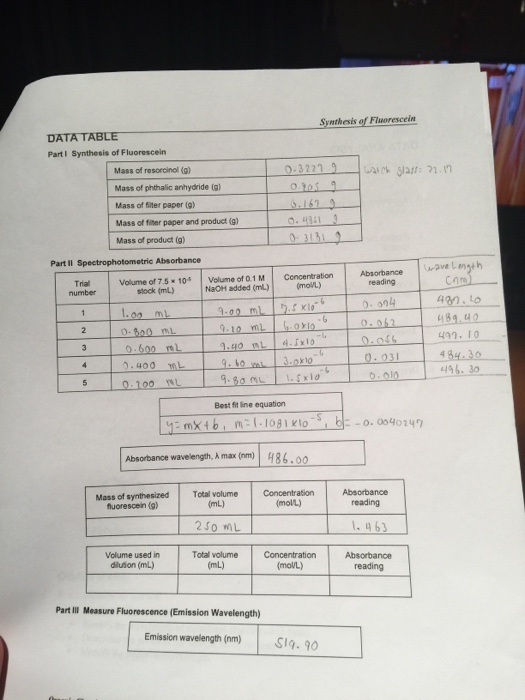 Synthesis of Fluorescein
DATA TABLE
Part I Synthesis of Fluorescein
Mass of resorcinol (g) 0.3227 g
Mass of phthalic anhydride (g) g
Mass of filter paper (g) g
Mass of filter paper and product (g) g
Mass of product (g) 0.3131 g
Part II Spectrophotometric Absorbance
wavelength
(nm)
Trial number Volume of 7.5 * 10⁻⁵ stock (mL) Volume of 0.1 M NaOH added (mL) Concentration (mol/L) Absorbance reading
1 1.00 mL 9.00 mL 7.5 x10⁻⁶ 0.094
2 0.800 mL 9.20 mL 6.0x10⁻⁶ 0.062 489.40
3 0.600 mL 9.40 mL 4.5x10⁻⁶ 0.056
4 0.400 mL 9.60 mL 3.0x10⁻⁶ 0.031 484.30
5 0.200 mL 9.80 mL 1.5x10⁻⁶ 0.010 496.30
Best fit line equation
y=mx+b, m=1.1081 x10⁻⁵, b=-0.0040247
Absorbance wavelength, λ max (nm) 486.00
Mass of synthesized fluorescein (g) Total volume (mL) Concentration (mol/L) Absorbance reading
250 mL 1.463
Volume used in dilution (mL) Total volume (mL) Concentration (mol/L) Absorbance reading
Part III Measure Fluorescence (Emission Wavelength)
Emission wavelength (nm) 519.90